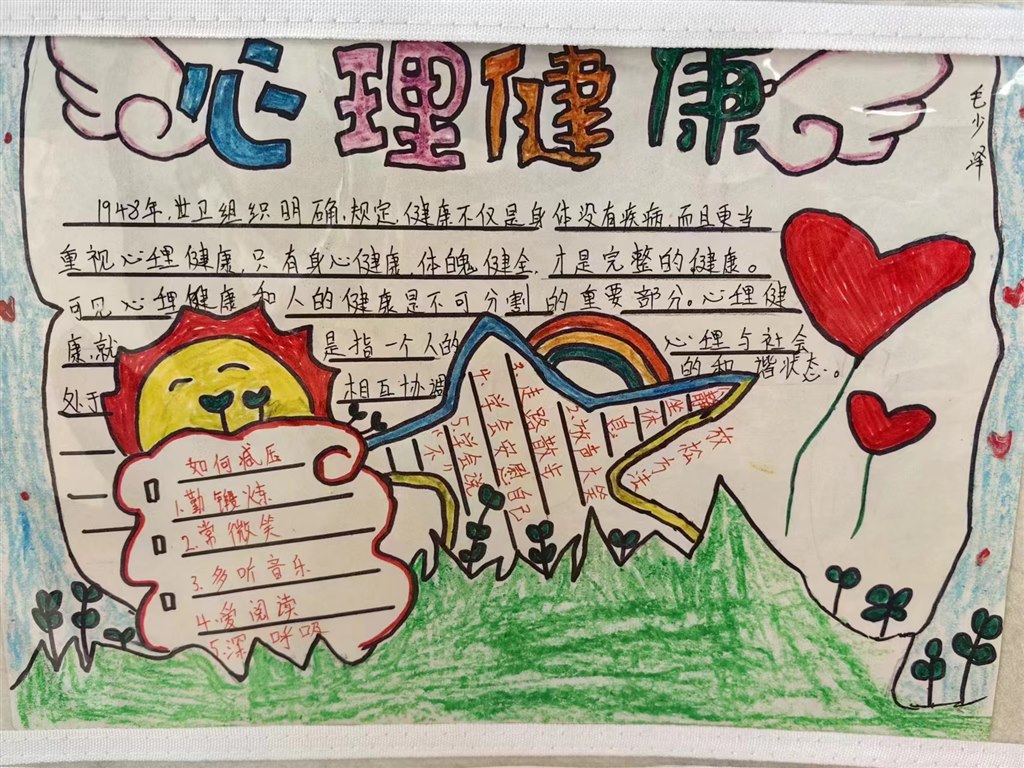 心理健康
毛少泽
1948年,世卫组织明确规定,健康不仅是身体没有疾病,而且更当
重视心理健康,只有身心健康,体魄健全,才是完整的健康。
可见心理健康和人的健康是不可分割的重要部分。心理健
康,就是指一个人的心理与社会
处于相互协调的和谐状态。
如何减压
1.勤锻炼
2.常微笑
3.多听音乐
4.爱阅读
5.深呼吸
放松方法
静坐休息
2.放声大笑
3.走路散步
4.学会安慰自己
5.学会说
“不”